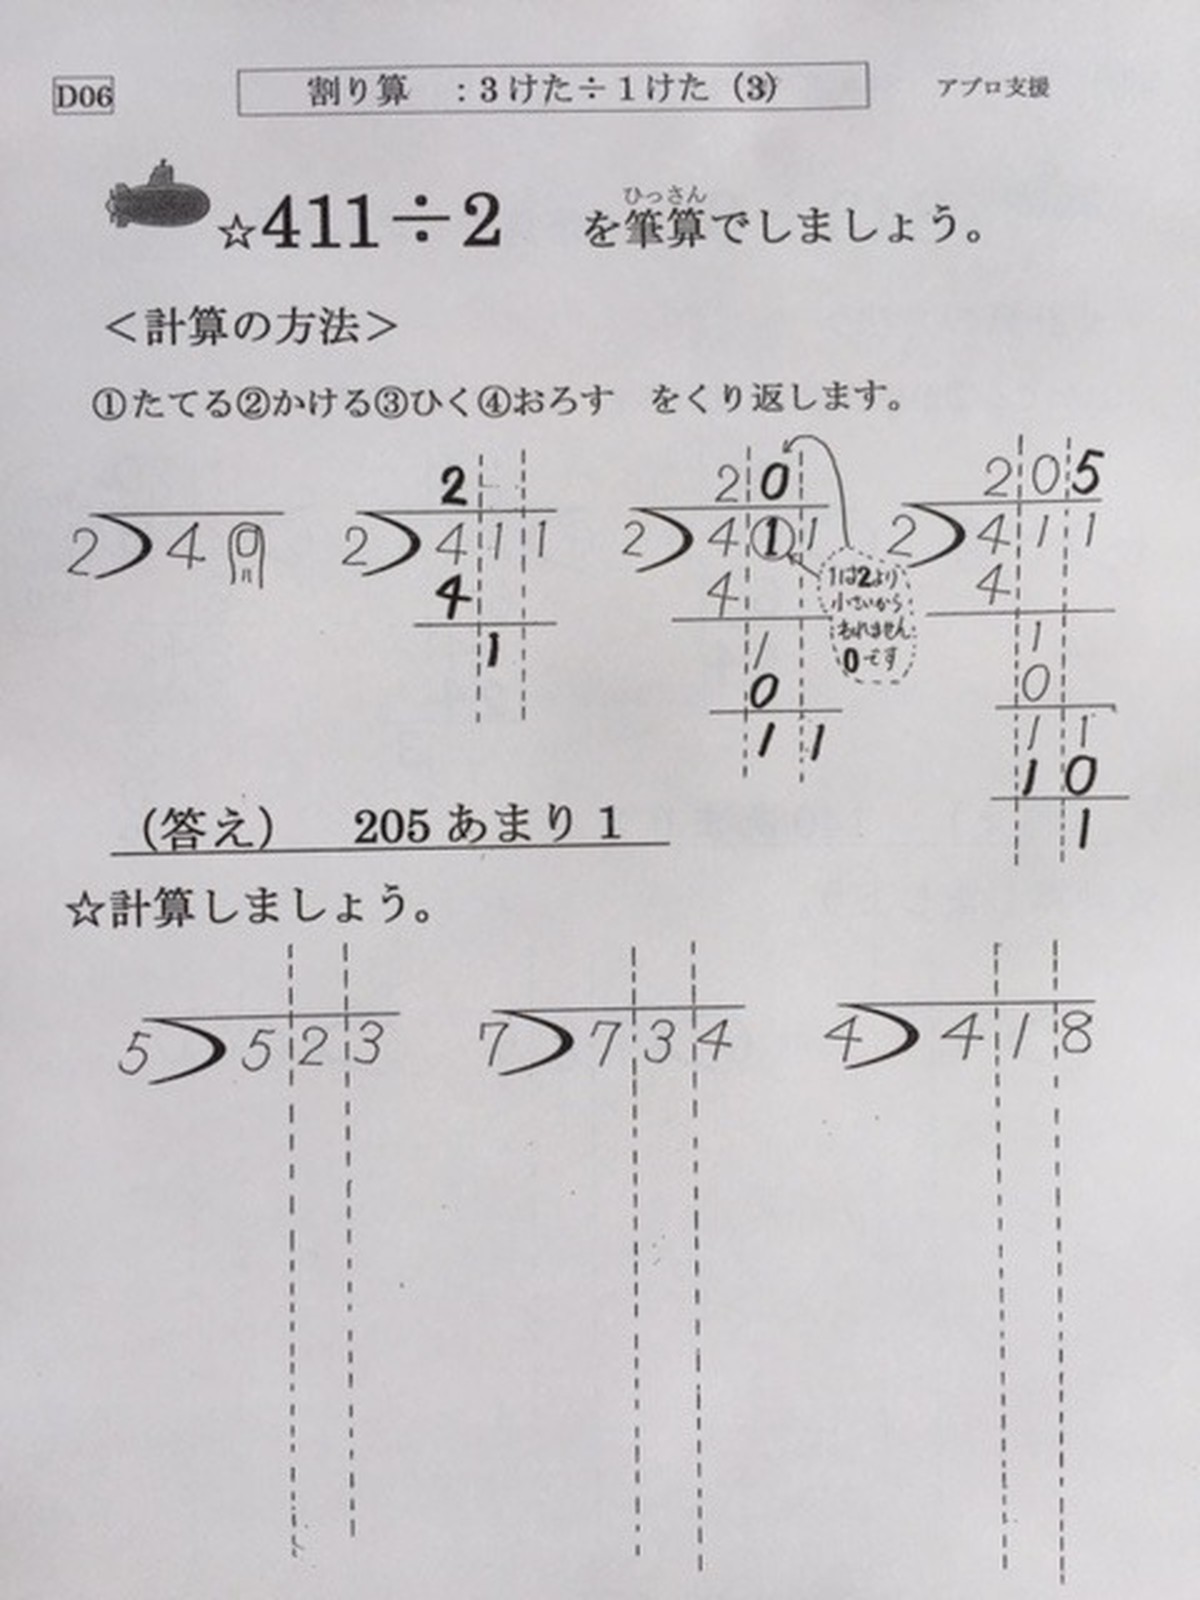 D06
割り算　：3けた÷1けた（3）
アプロ支援
ひっさん
☆411÷2　を筆算でしましょう。
＜計算の方法＞
①たてる②かける③ひく④おろす　をくり返します。
2 ) 4
2
2 ) 4 1 1
4
1
2 0
2 ) 4 1 1
4
1
0
1 1
1は2より
小さいから
われません
0です
2 0 5
2 ) 4 1 1
4
1
0
1 1
1 0
1
（答え）　205 あまり 1
☆計算しましょう。
5 ) 5 2 3
7 ) 7 3 4
4 ) 4 1 8